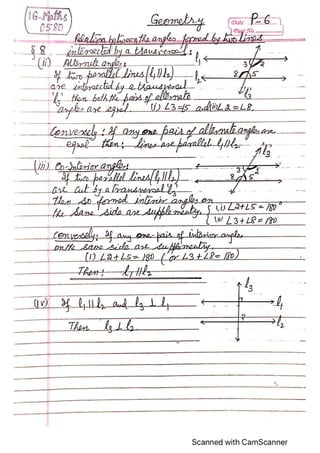 16-Maths
0580
Geometry
Date P-6
Page No
Relation between the angles formed by two lines
§ 8 intersected by a transversal:
(ii) Alternate angles:
If two parallel lines (l₁ll l₂)
are intersected by a transversal
'l₃' then both the pairs of alternate
angles are equal. (i) ∠3=∠5 and (ii) ∠2=∠8.
l₁
l₂
l₃
3 2
8 5
Conversely: If any one pair of alternate angles are
equal then; lines are parallel l₁ll l₂
(iii) Co-Interior angles:
If two parallel lines (l₁ll l₂)
are cut by a transversal 'l₃'
Then so formed interior angles on
the same side are supplementry.
(i) ∠2+∠5=180°
(ii) ∠3+∠8=180
l₃
3 2
8 5
Conversely; If any one pair of interior angles
on the same side are supplementry.
(i) ∠2+∠5=180 (or ∠3+∠8=180)
Then: l₁ll l₂
(iv) If l₁ll l₂ and l₃ ⊥ l₁
Then l₃ ⊥ l₂
l₃
l₁
l₂
?
Scanned with CamScanner